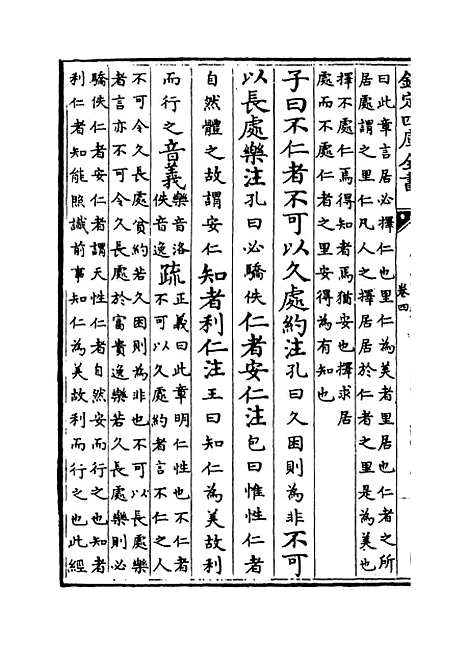 欽定四庫全書
卷四
曰此章言居必擇仁也里仁為美者里居也仁者之所
居處謂之里仁凡人之擇居居於仁者之里是為美也
擇不處仁焉得知者焉猶安也擇求居
處而不處仁者之里安得為有知也
子曰不仁者不可以久處約注孔曰久困則為非不可
以長處樂注孔曰必驕佚仁者安仁注包曰惟性仁者
自然體之故謂安仁知者利仁注王曰知仁為美故利
而行之音義樂音洛佚音逸疏正義曰此章明仁性也不仁者
不可以久處約者言不仁之人
不可令久長處貧約若久困則為非也不可以長處樂
者言亦不可令久長處於富貴逸樂若久長處樂則必
驕佚仁者安仁者謂天性仁者自然安而行之也知者
利仁者知能照識前事知仁為美故利而行之也此經